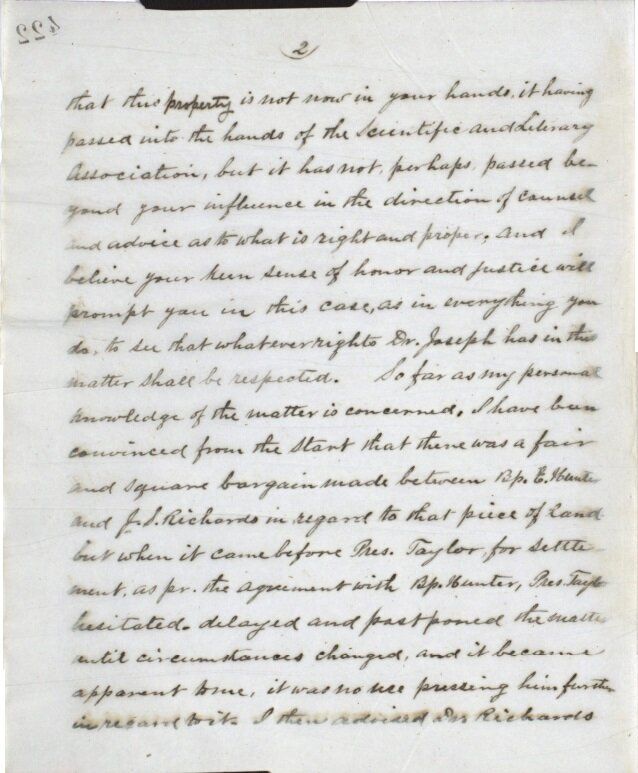 422
2
that this property is not now in your hands, it having
passed into the hands of the Scientific and Literary
Association, but it has not, perhaps, passed be-
yond your influence in the direction of counsel
and advice as to what is right and proper, and I
believe your keen sense of honor and justice will
prompt you in this case, as in everything you
do, to see that whatever rights Dr. Joseph has in this
matter shall be respected. So far as my personal
knowledge of the matter is concerned, I have been
convinced from the start that there was a fair
and square bargain made between Bp. E. Hunter
and J. S. Richards in regard to that piece of land
but when it came before Pres. Taylor, for settle-
ment, as pr. the agreement with Bp. Hunter, Pres. Taylor
hesitated, delayed and postponed the matter
until circumstances changed, and it became
apparent to me, it was no use pressing him further
in regard to it. I then advised Dr. Richards